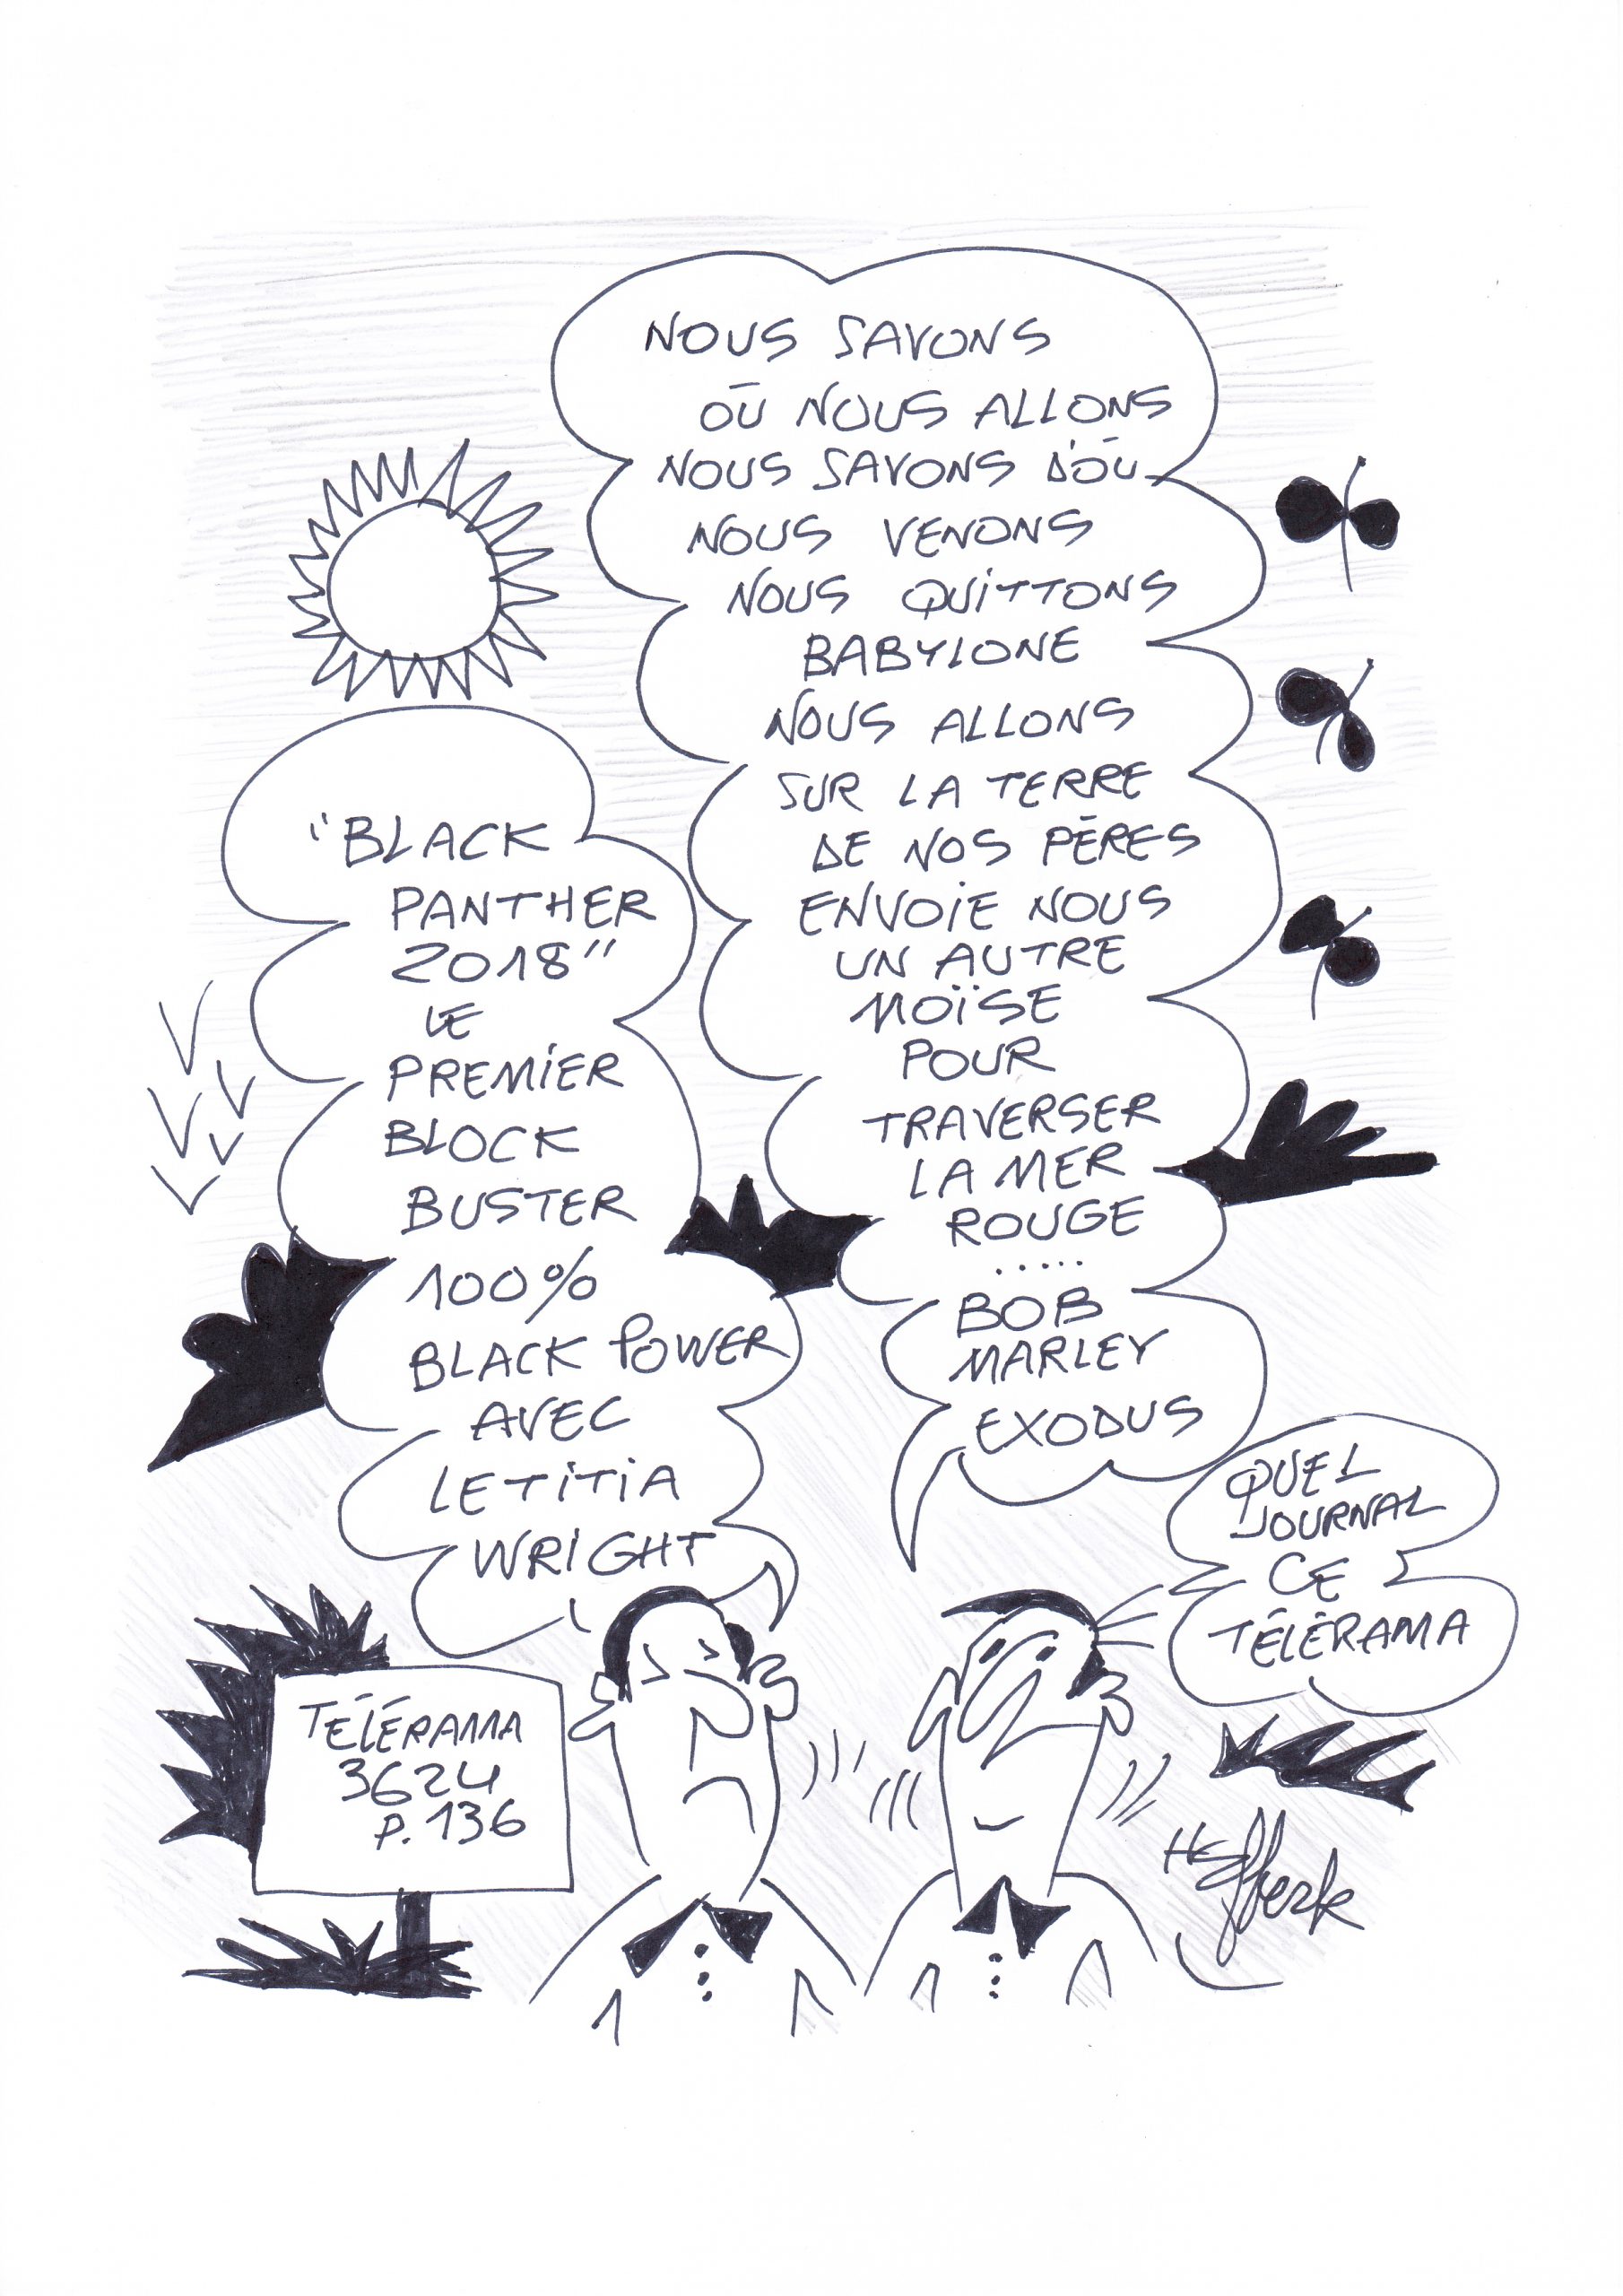 "BLACK
PANTHER
2018"
LE
PREMIER
BLOCK
BUSTER
100%
BLACK POWER
AVEC
LETITIA
WRIGHT
NOUS SAVONS
OÙ NOUS ALLONS
NOUS SAVONS D'OÙ
NOUS VENONS
NOUS QUITTONS
BABYLONE
NOUS ALLONS
SUR LA TERRE
DE NOS PÈRES
ENVOIE NOUS
UN AUTRE
MOÏSE
POUR
TRAVERSER
LA MER
ROUGE
.....
BOB
MARLEY
EXODUS
QUEL
JOURNAL
CE
TÉLÉRAMA
TÉLÉRAMA
3624
P.136